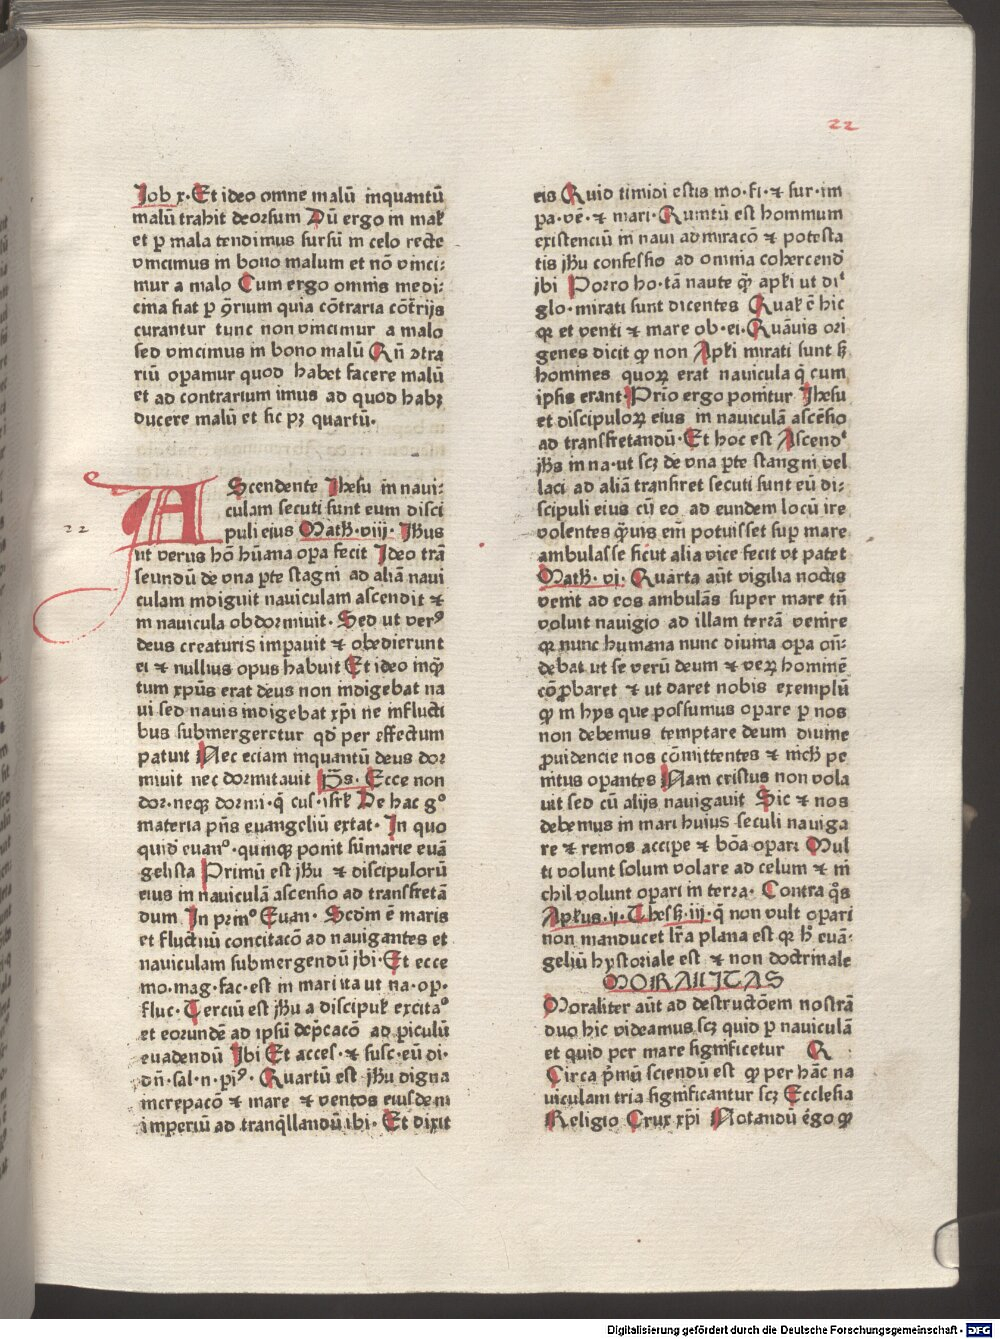 22
Job x. Et ideo omne malū inquantū
malū trahit deorsum Dū ergo in mak
et ꝑ mala tendimus sursū in celo recte
vincimus in bono malum et nō vinci:
mur a malo Cum ergo omnis medi:
cina fiat ꝑ ꝯrium quia cōtraria cōtrijs
curantur tunc non vincimur a malo
sed vincimus in bono malū Qñ ꝯtra
riū oꝑamur quod habet facere malū
et ad contrarium imus ad quod habꝫ
ducere malū et sic pꝫ quartū.
22
AScendente Jhesu in naui:
culam secuti sunt eum disci
puli eius Math. viij. Jhus
ut verus hō hūana oꝑa fecit Ideo trā
seundū de vna ꝑte stagni ad aliā naui
culam indiguit nauiculam ascendit ⁊
in nauicula obdormiuit. Sed ut verꝰ
deus creaturis imꝑauit ⁊ obedierunt
ei ⁊ nullius opus habuit Et ideo inꝙ̄
tum xp̄us erat deus non indigebat na
ui sed nauis indigebat xp̄i ne in flucti
bus submergeretur qd̄ per effectum
patuit Nec eciam inquantū deus dor
miuit nec dormitauit p̄s. Ecce non
dor. neqꝫ dormi. q̄ cus. isrk De hac gͦ
materia p̄ns euangeliū extat. In quo
quid euanͦ. quinqꝫ ponit sūmarie euā
gelista Primū est jhū ⁊ discipulorū
eius in nauiculā ascensio ad transfretā
dum In primͦ Euan. Scdm̄ ē maris
et fluctuū concitacō ad nauigantes et
nauiculam submergendū ibi. Et ecce
mo. mag. fac. est in mari ita ut na. op.
fluc. Terciū est jhū a discipuk excitaͦ
et eorundē ad ipsū dep̄cacō ad ꝑiculū
euadendū Ibi Et acces. ⁊ susc. eū di.
dn̄. sal. n. piꝰ. Quartū est jhū digna
increpacō ⁊ mare ⁊ ventos eiusdem
īmperiū ad tranq̄llandū ibi. Et dixit
eis Quid timidi estis mo. fi. ⁊ sur. im
pa. vē. ⁊ mari. Quintū est hominum
existenciū in naui admiracō ⁊ potesta
tis jhū confessio ad omnia cohercend̄
ibi Porro ho. tā naute ꝙ̄ apki ut di
glo. mirati sunt dicentes Quak ē hic
qꝛ et venti ⁊ mare ob. ei. Quāuis ori
genes dicit ꝙ non Apki mirati sunt sꝫ
homines quorꝫ erat nauicula q̄ cum
ipsis erant. Prīo ergo ponitur Jhesu
et discipuloꝝ eius in nauiculā ascēsio
ad transfretandū. Et hoc est Ascend
jhs̄ in na. ut scꝫ de vna ꝑte stangni vel
laci ad aliā transiret secuti sunt eū di:
scipuli eius cū eo ad eundem locū ire
volentes q̄uis em̄ potuisset suꝑ mare
ambulasse sicut alia vice fecit vt patet
Math. vi. Quarta aūt vigilia noctis
venit ad eos ambulās super mare tn̄
voluit nauigio ad illam terrā venire
qꝛ nunc humana nunc diuina opa on̄:
debat ut se verū deum ⁊ veꝝ hominē
cōꝓbaret ⁊ ut daret nobis exemplū
ꝙ in hys que possumus oꝑare ꝑ nos
non debemus temptare deum diuine
ꝓuidencie nos cōmittentes ⁊ nichil pe
nitus oꝑantes Nam cristus non vola
uit sed cū alijs nauigauit Sic ⁊ nos
debemus in mari huius seculi nauiga
re ⁊ remos accipe ⁊ bōa oꝑari Mul
ti volunt solum volare ad celum ⁊ ni
chil volunt oꝑari in terra. Contra q̄s
Apkus. ij. Thess. iij. q̄ non vult oꝑari
non manducet lr̄a plana est qꝛ hꝭ euā:
geliū hystoriale est ⁊ non doctrinale
MORALITAS
Moraliter aūt ad destructōem nostrā
duo hic videamus scꝫ quid ꝑ nauiculā
et quid per mare significetur R
Circa p̄mū sciendū est ꝙ per hāc na
uiculam tria significantur scꝫ Ecclesia
Religio Crux xp̄i Notandū ēgo ꝙ
Digitalisierung gefördert durch die Deutsche Forschungsgemeinschaft - DFG